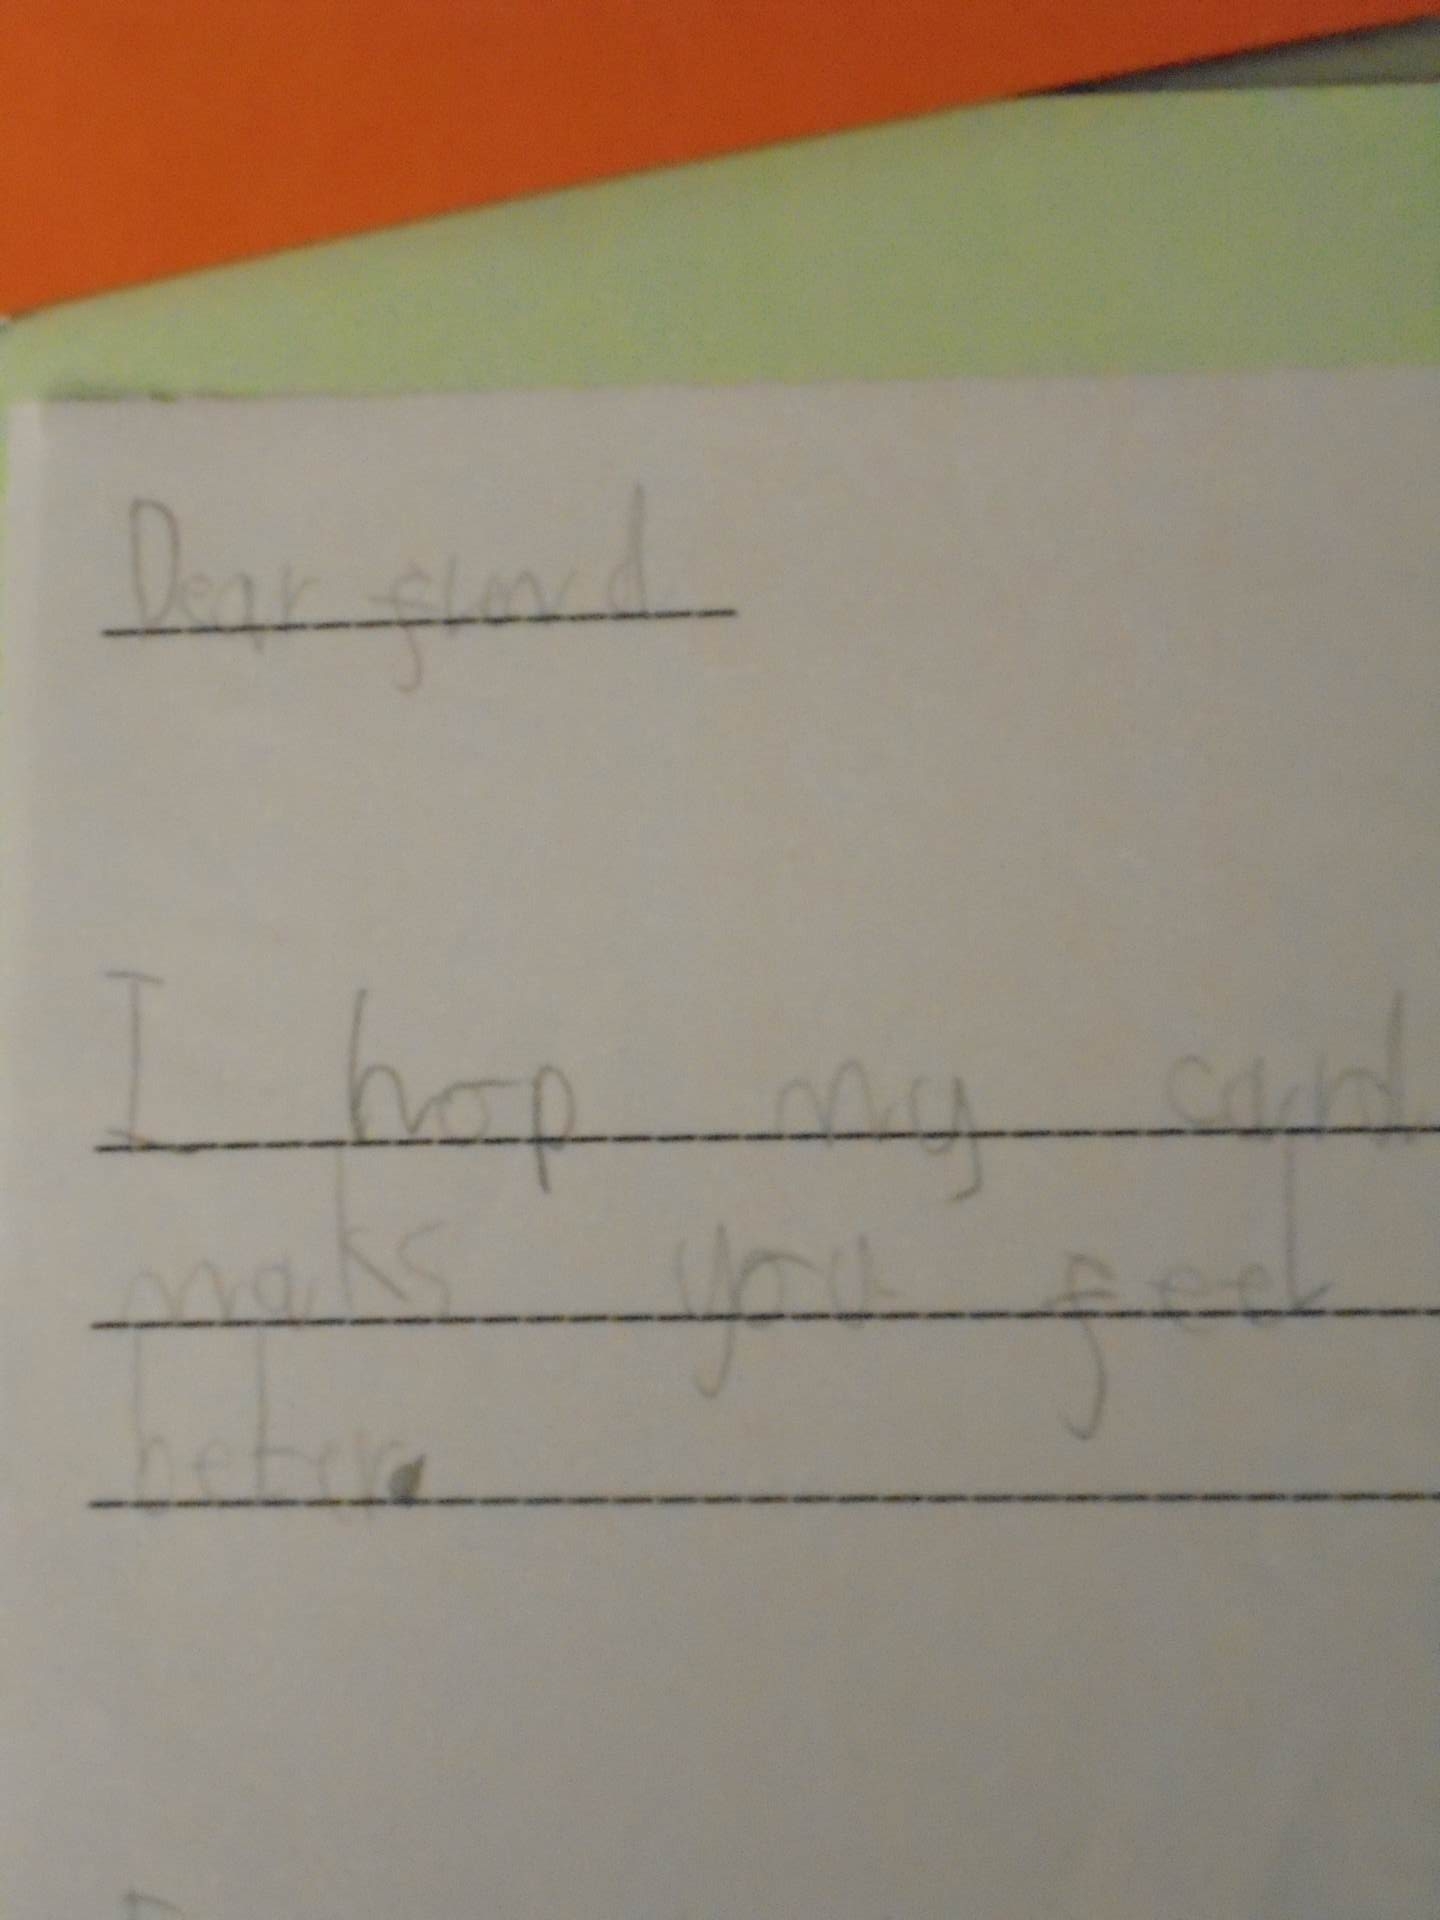 Dear frend
I hop my card
maks you feel
beter.